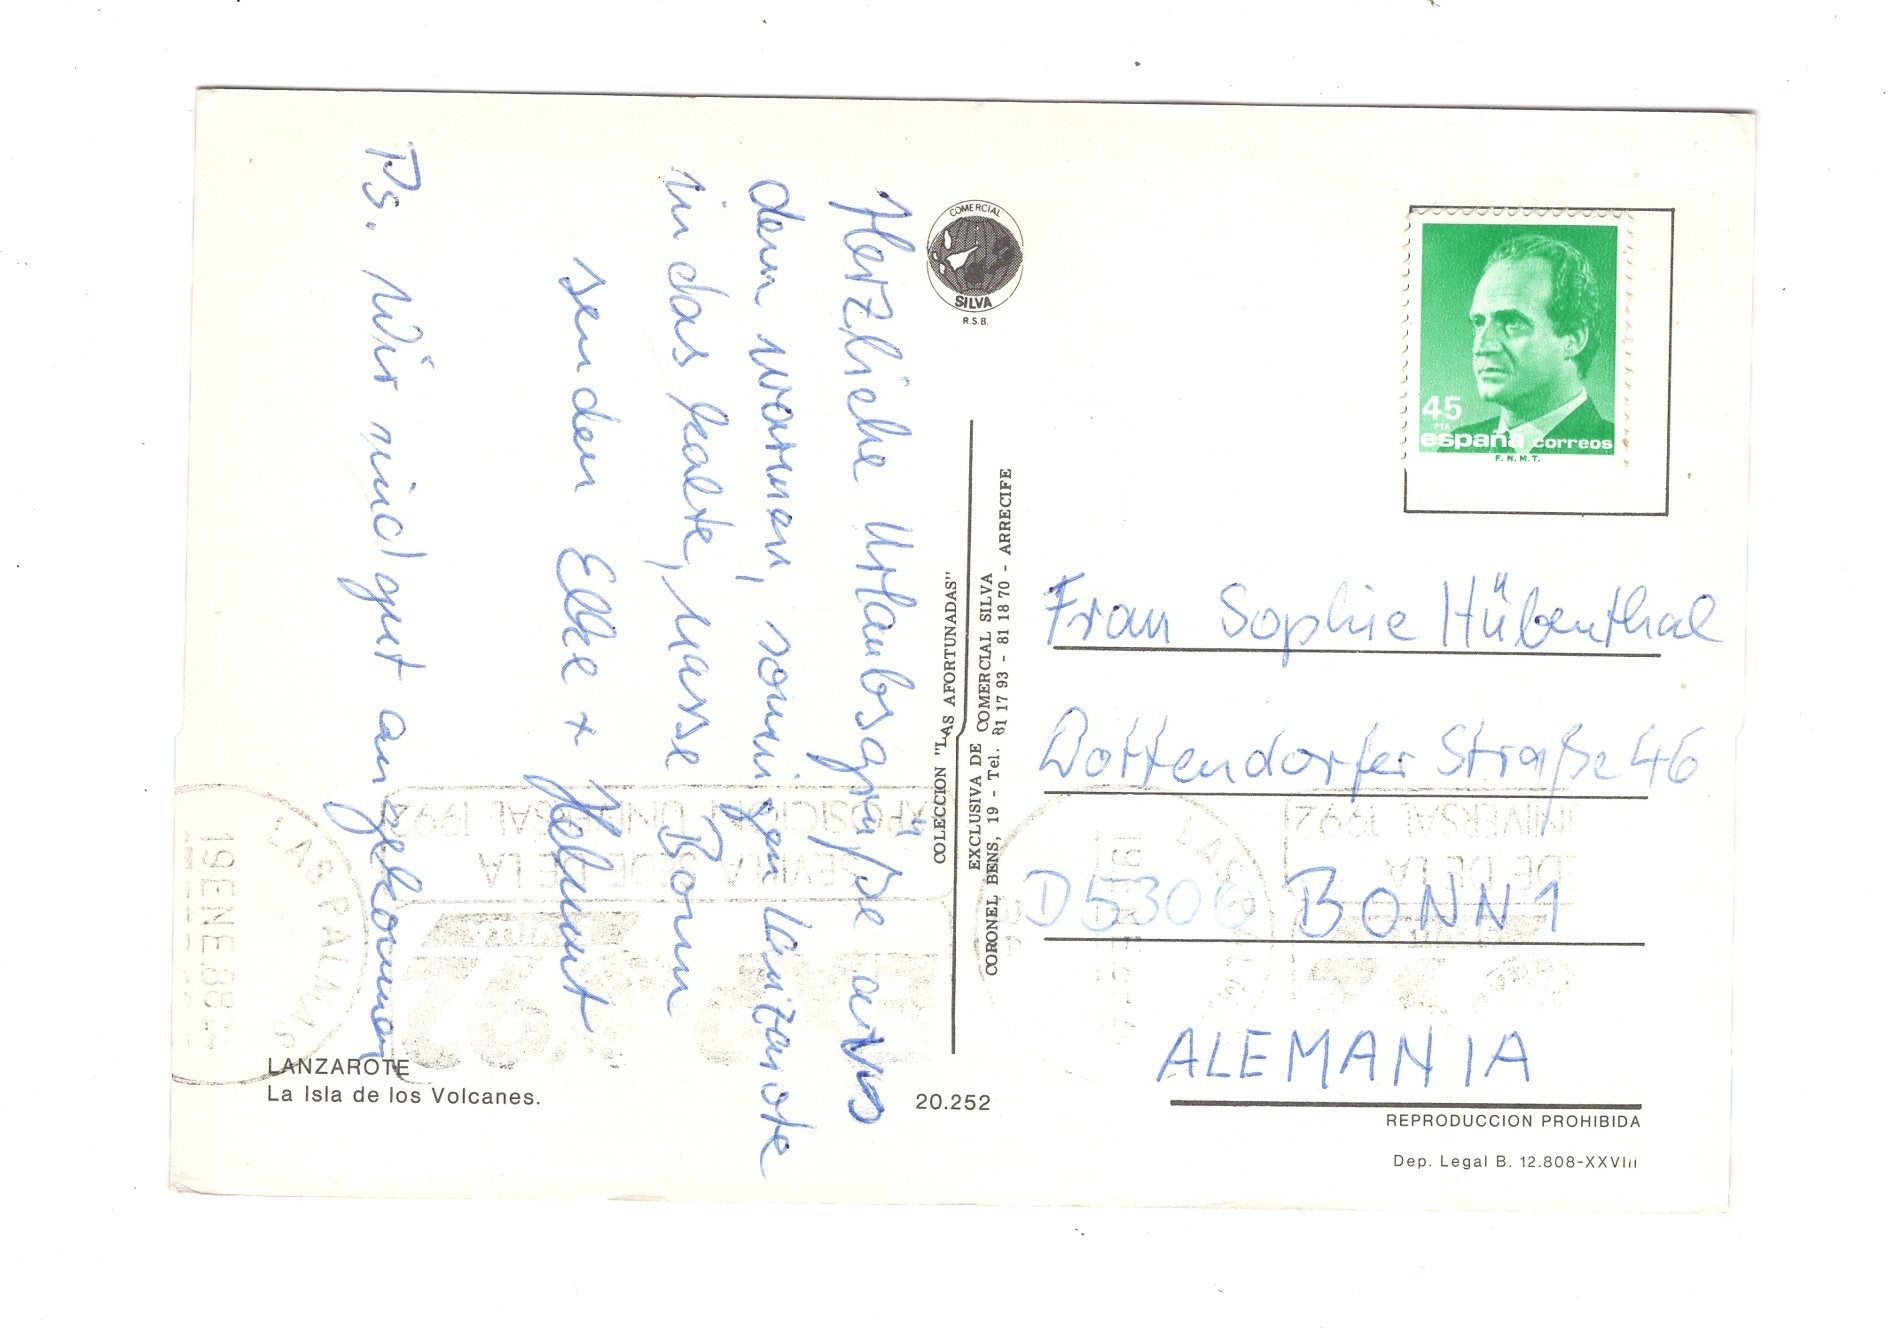 Herzliche Urlaubsgrüße aus
dem warmen, sonnigen Lanzarote
in das kalte, nasse Bonn
senden Elke + Helmut
Ps. Wir sind gut angekommen
COMERCIAL
SILVA
R.S.B.
COLECCION "LAS AFORTUNADAS"
EXCLUSIVA DE COMERCIAL SILVA
CORONEL BENS, 19 - Tel. 81 17 93 - 81 18 70 - ARRECIFE
45
PTA
españa correos
F.N.M.T.
Frau Sophie Hübenthal
Dottendorfer Straße 46
D 5300 BONN 1
ALEMANIA
EXPOSICION UNIVERSAL 1992
SEVILLA SEDE DE LA
LAS PALMAS
19 ENE 88
UNIVERSAL 1992
DE DE LA
LANZAROTE
La Isla de los Volcanes.
20.252
REPRODUCCION PROHIBIDA
Dep. Legal B. 12.808-XXVIII